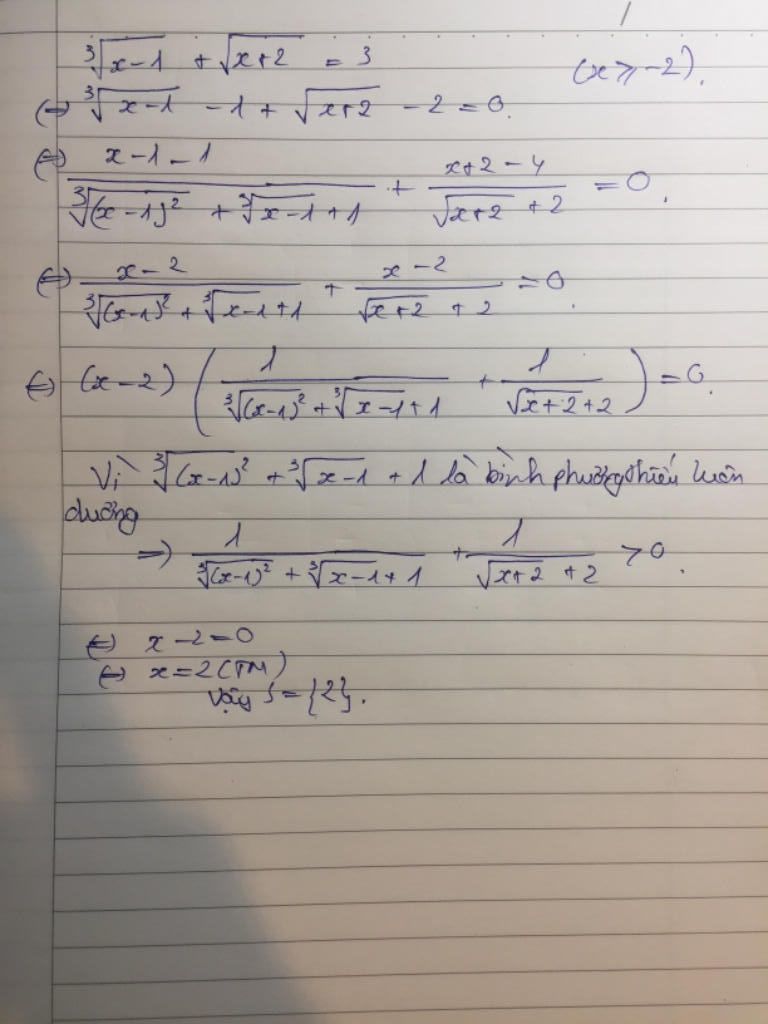 ∛(x-1) + √(x+2) = 3 (x ≥ -2).
(=) ∛(x-1) - 1 + √(x+2) - 2 = 0.
(=) (x-1-1)/(∛((x-1)²) + ∛(x-1) + 1) + (x+2-4)/(√(x+2) + 2) = 0.
(=) (x-2)/(∛((x-1)²) + ∛(x-1) + 1) + (x-2)/(√(x+2) + 2) = 0.
(=) (x-2) (1/(∛((x-1)²) + ∛(x-1) + 1) + 1/(√(x+2) + 2)) = 0.
Vì ∛((x-1)²) + ∛(x-1) + 1 là bình phương thiếu luôn
dương
=) 1/(∛((x-1)²) + ∛(x-1) + 1) + 1/(√(x+2) + 2) > 0.
(=) x-2=0
(=) x=2 (TM)
Vậy S={2}.